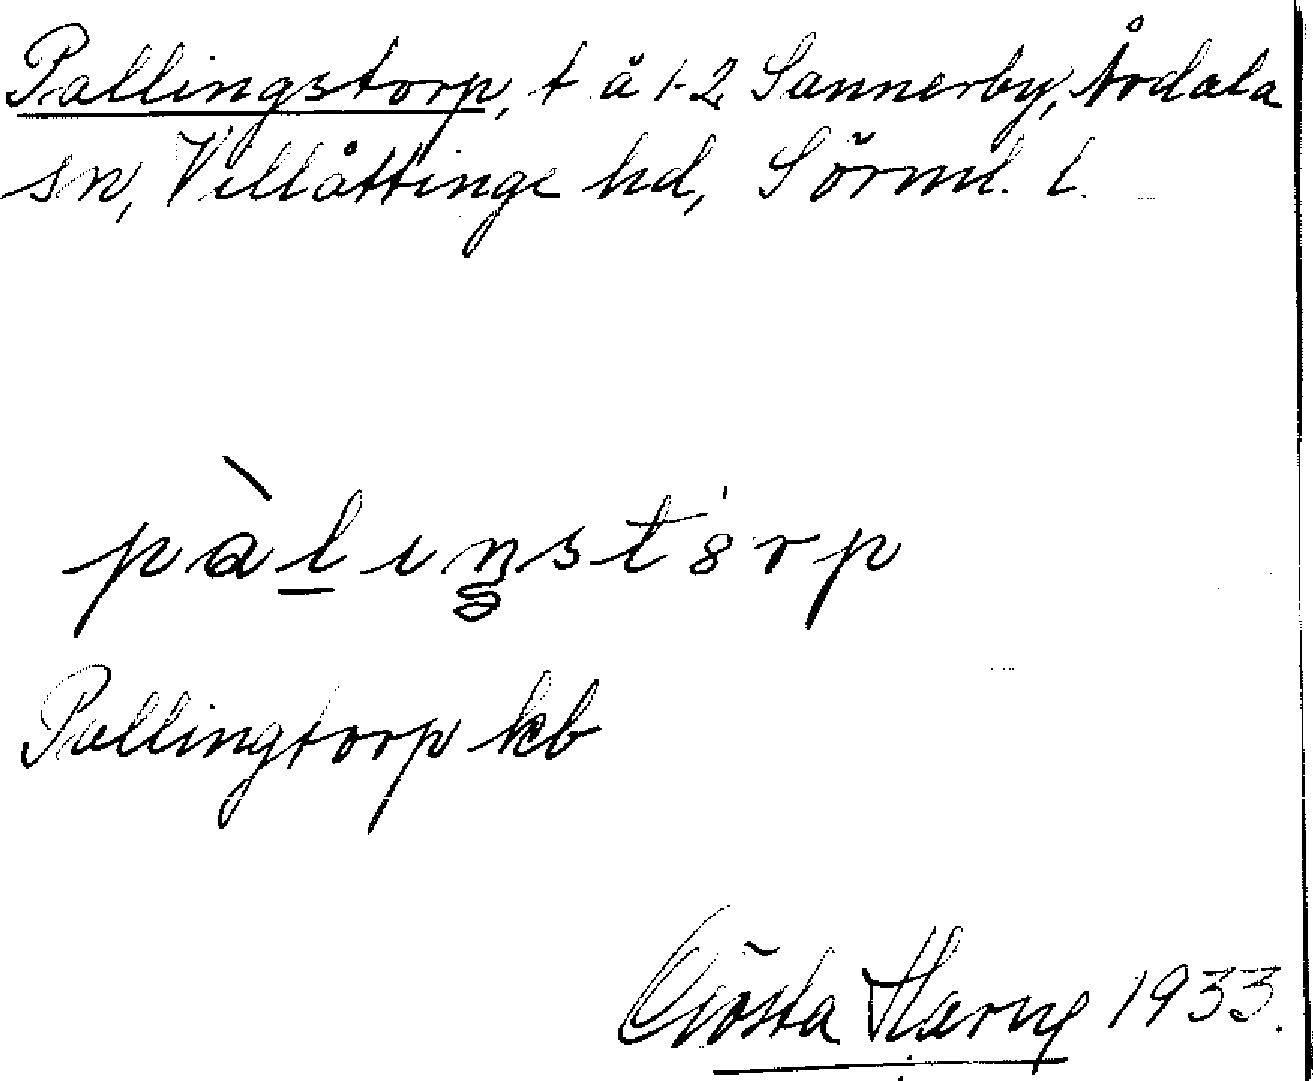 Pallingstorp, t å 1-2 Sannerby, Årdala
sn, Villåttinge hd, Sörml. l.
pàlıŋstȯrp
Pallingtorp kb
Gösta 1933.